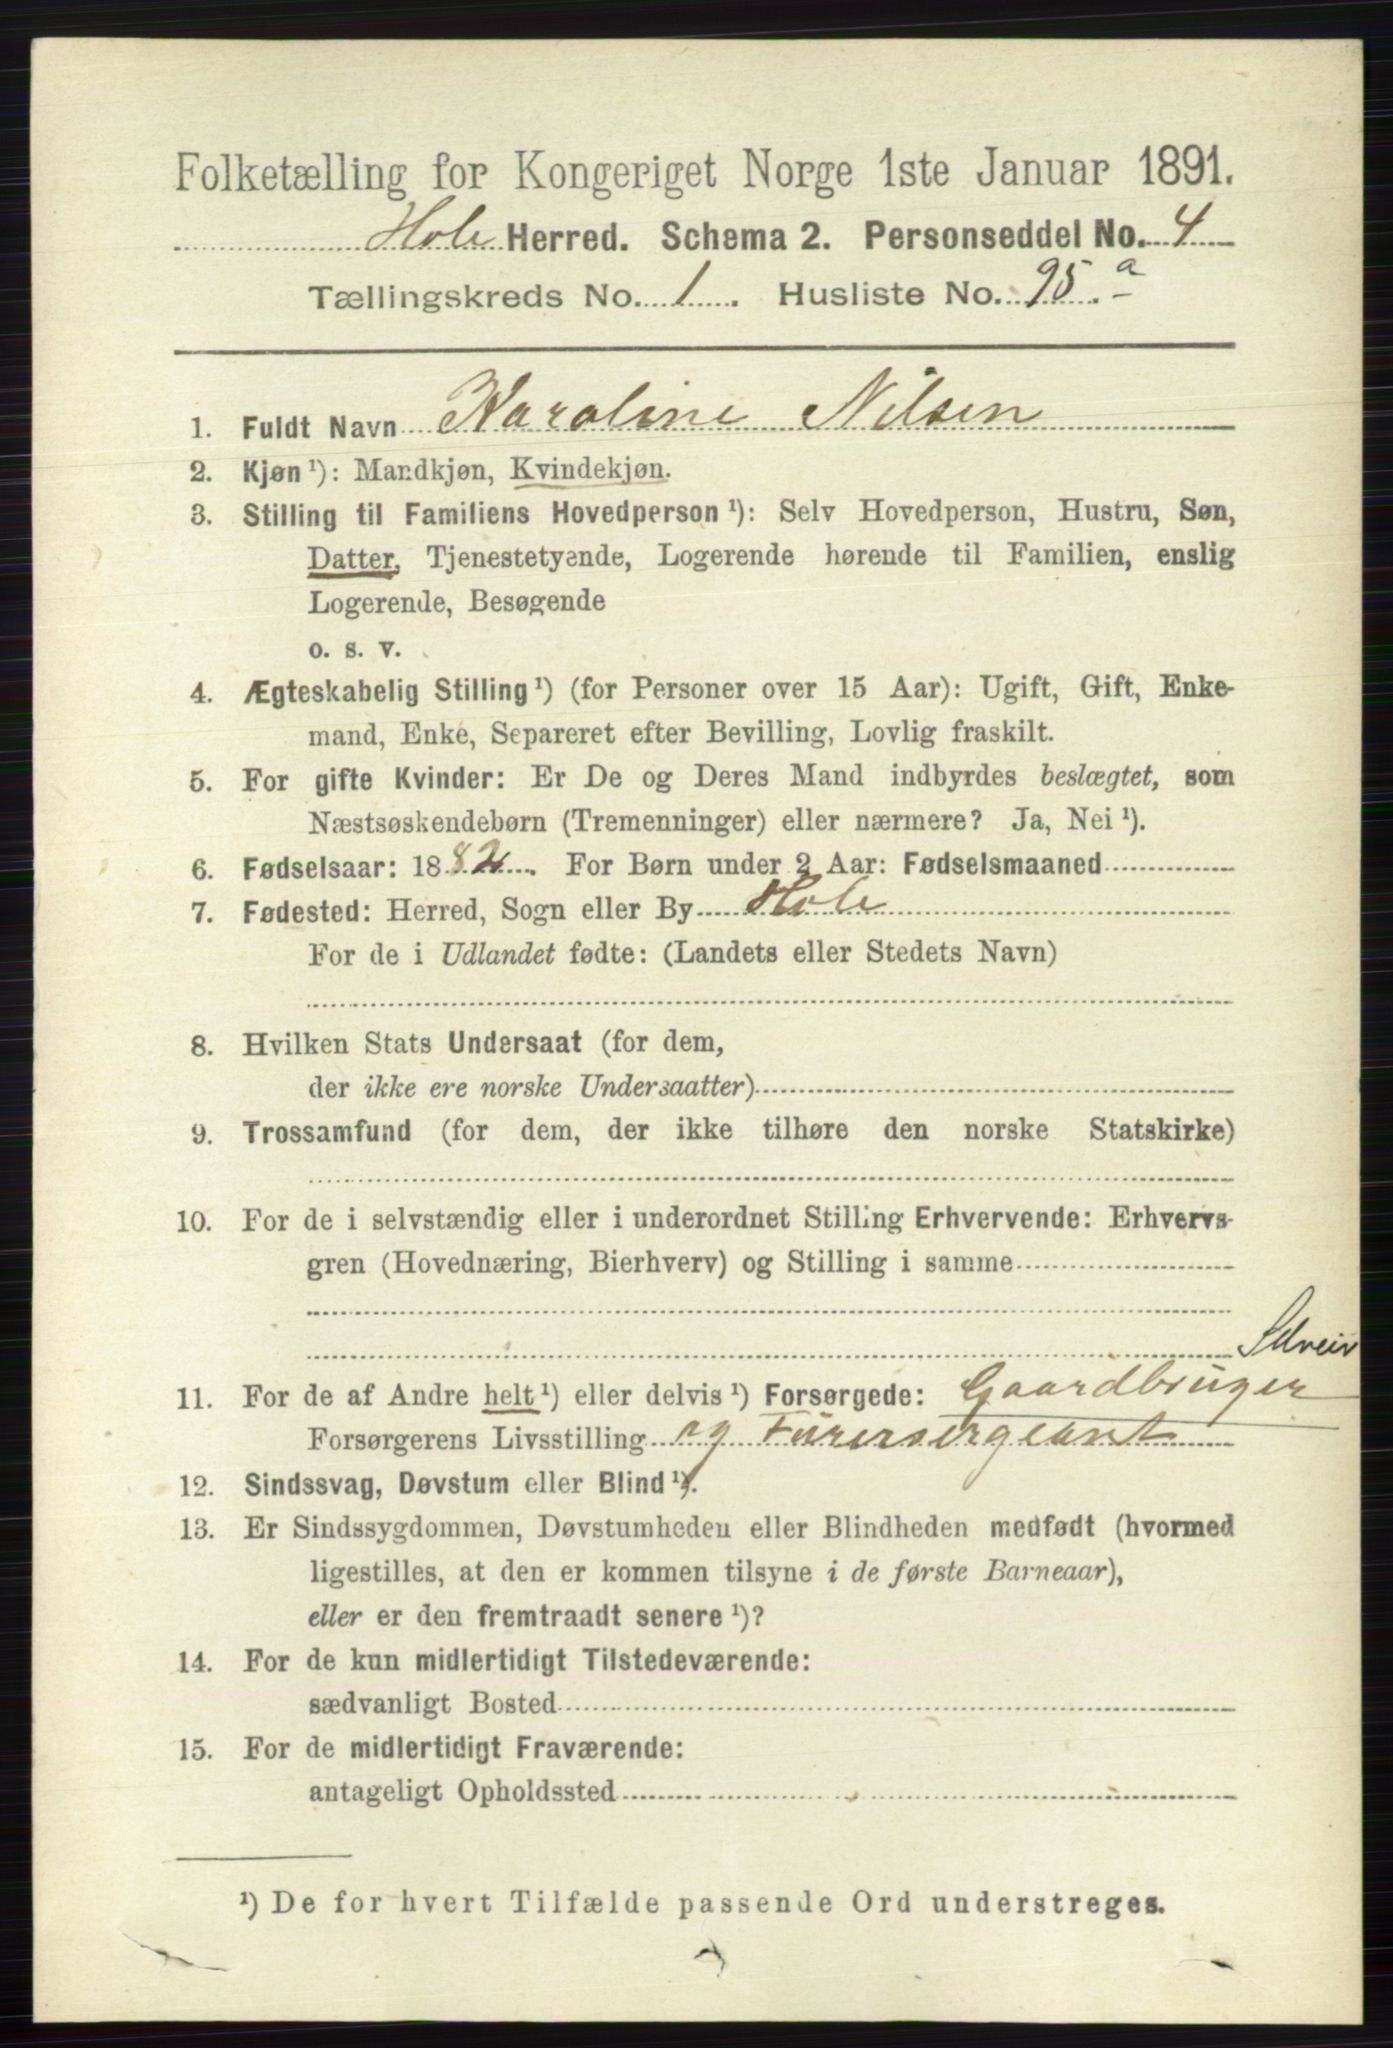 Folketælling for Kongeriget Norge 1ste Januar 1891.
Hole Herred. Schema 2. Personseddel No. 4
Tællingskreds No. 1. Husliste No. 95.a
1. Fuldt Navn Karoline Nilsen
2. Kjøn ¹): Mandkjøn, Kvindekjøn.
3. Stilling til Familiens Hovedperson ¹): Selv Hovedperson, Hustru, Søn,
Datter, Tjenestetyende, Logerende hørende til Familien, enslig
Logerende, Besøgende
o. s. v.
4. Ægteskabelig Stilling ¹) (for Personer over 15 Aar): Ugift, Gift, Enke-
mand, Enke, Separeret efter Bevilling, Lovlig fraskilt.
5. For gifte Kvinder: Er De og Deres Mand indbyrdes beslægtet, som
Næstsøskendebørn (Tremenninger) eller nærmere? Ja, Nei ¹).
6. Fødselsaar: 1882. For Børn under 2 Aar: Fødselsmaaned
7. Fødested: Herred, Sogn eller By Hole
For de i Udlandet fødte: (Landets eller Stedets Navn)
8. Hvilken Stats Undersaat (for dem,
der ikke ere norske Undersaatter)
9. Trossamfund (for dem, der ikke tilhøre den norske Statskirke)
10. For de i selvstændig eller i underordnet Stilling Erhvervende: Erhvervs-
gren (Hovednæring, Bierhverv) og Stilling i samme
Selveier
11. For de af Andre helt ¹) eller delvis ¹) Forsørgede: Gaardbruger
Forsørgerens Livsstilling og Furersergeant
12. Sindssvag, Døvstum eller Blind ¹).
13. Er Sindssygdommen, Døvstumheden eller Blindheden medfødt (hvormed
ligestilles, at den er kommen tilsyne i de første Barneaar),
eller er den fremtraadt senere ¹)?
14. For de kun midlertidigt Tilstedeværende:
sædvanligt Bosted
15. For de midlertidigt Fraværende:
antageligt Opholdssted
¹) De for hvert Tilfælde passende Ord understreges.